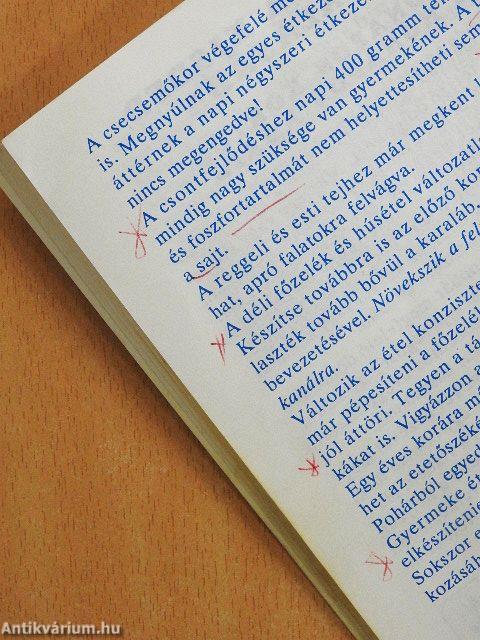 A csecsemőkor végefelé
is. Megnyúlnak az egyes étkez
áttérnek a napi négyszeri étkez
nincs megengedve!
A csontfejlődéshez napi 400 gramm
mindig nagy szüksége van gyermekének. A
és foszfortartalmát nem helyettesítheti sem
a sajt.
A reggeli és esti tejhez már megkent
hat, apró falatokra felvágva.
A déli főzelék és húsétel változatl
Készítse továbbra is az előző kor
laszték tovább bővül a karaláb,
bevezetésével. Növekszik a fel
kanálra.
Változik az étel konziszte
már pépesíteni a főzelé
jól áttöri. Tegyen a tá
kákat is. Vigyázzon a
Egy éves korára m
het az etetőszék
Pohárból egyed
Gyermeke é
elkészíteni
Sokszor e
kozásáb
Antikvárium.hu